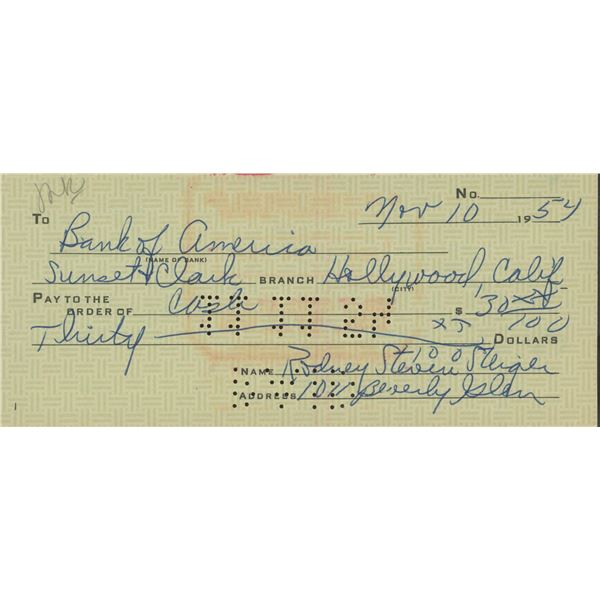 No.
Nov 10 1954
To Bank of America
(NAME OF BANK)
Sunset & Clark BRANCH Hollywood, Calif
(CITY)
PAY TO THE ORDER OF Cash $ 30 xx/100
Thirty xx/100 DOLLARS
NAME Rodney Steven Steiger
ADDRESS 1011 Beverly Glen
1